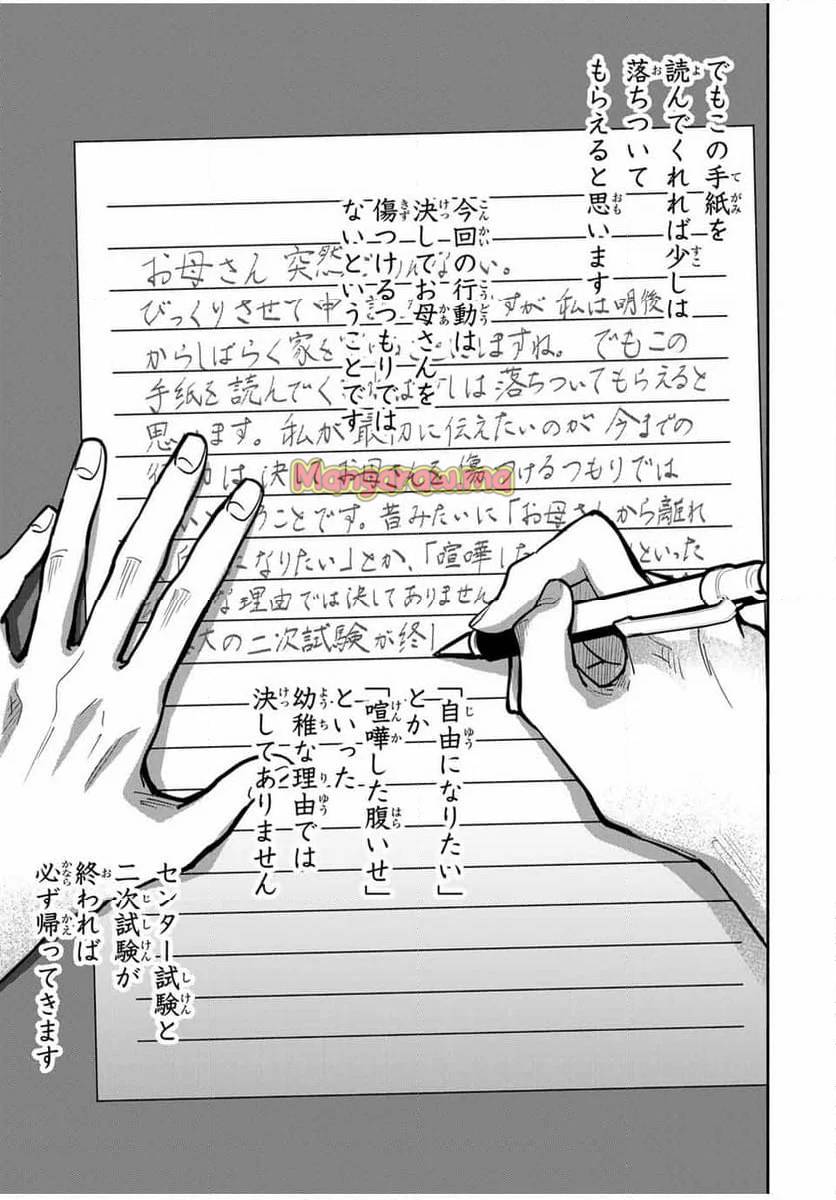 でもこの手紙を
読んでくれれば少しは
落ちついて
もらえると思います
今回の行動は
決してお母さんを
傷つけるつもりでは
ないということです
お母さん 突然 い。
びっくりさせて申 すが 私は明後
からしばらく家を ますね。 でもこの
手紙を読んでく しは落ちついてもらえると
思います。私が最初に伝えたいのが 今までの
は決 お母さんを傷つけるつもりでは
うことです。昔みたいに「お母さんから離れ
なりたい」とか、「喧嘩した といった
な理由では決してありません
の二次試験が終
Mangaraw.ma
「自由になりたい」
とか
「喧嘩した腹いせ」
といった
幼稚な理由では
決してありません
センター試験と
二次試験が
終われば
必ず帰ってきます